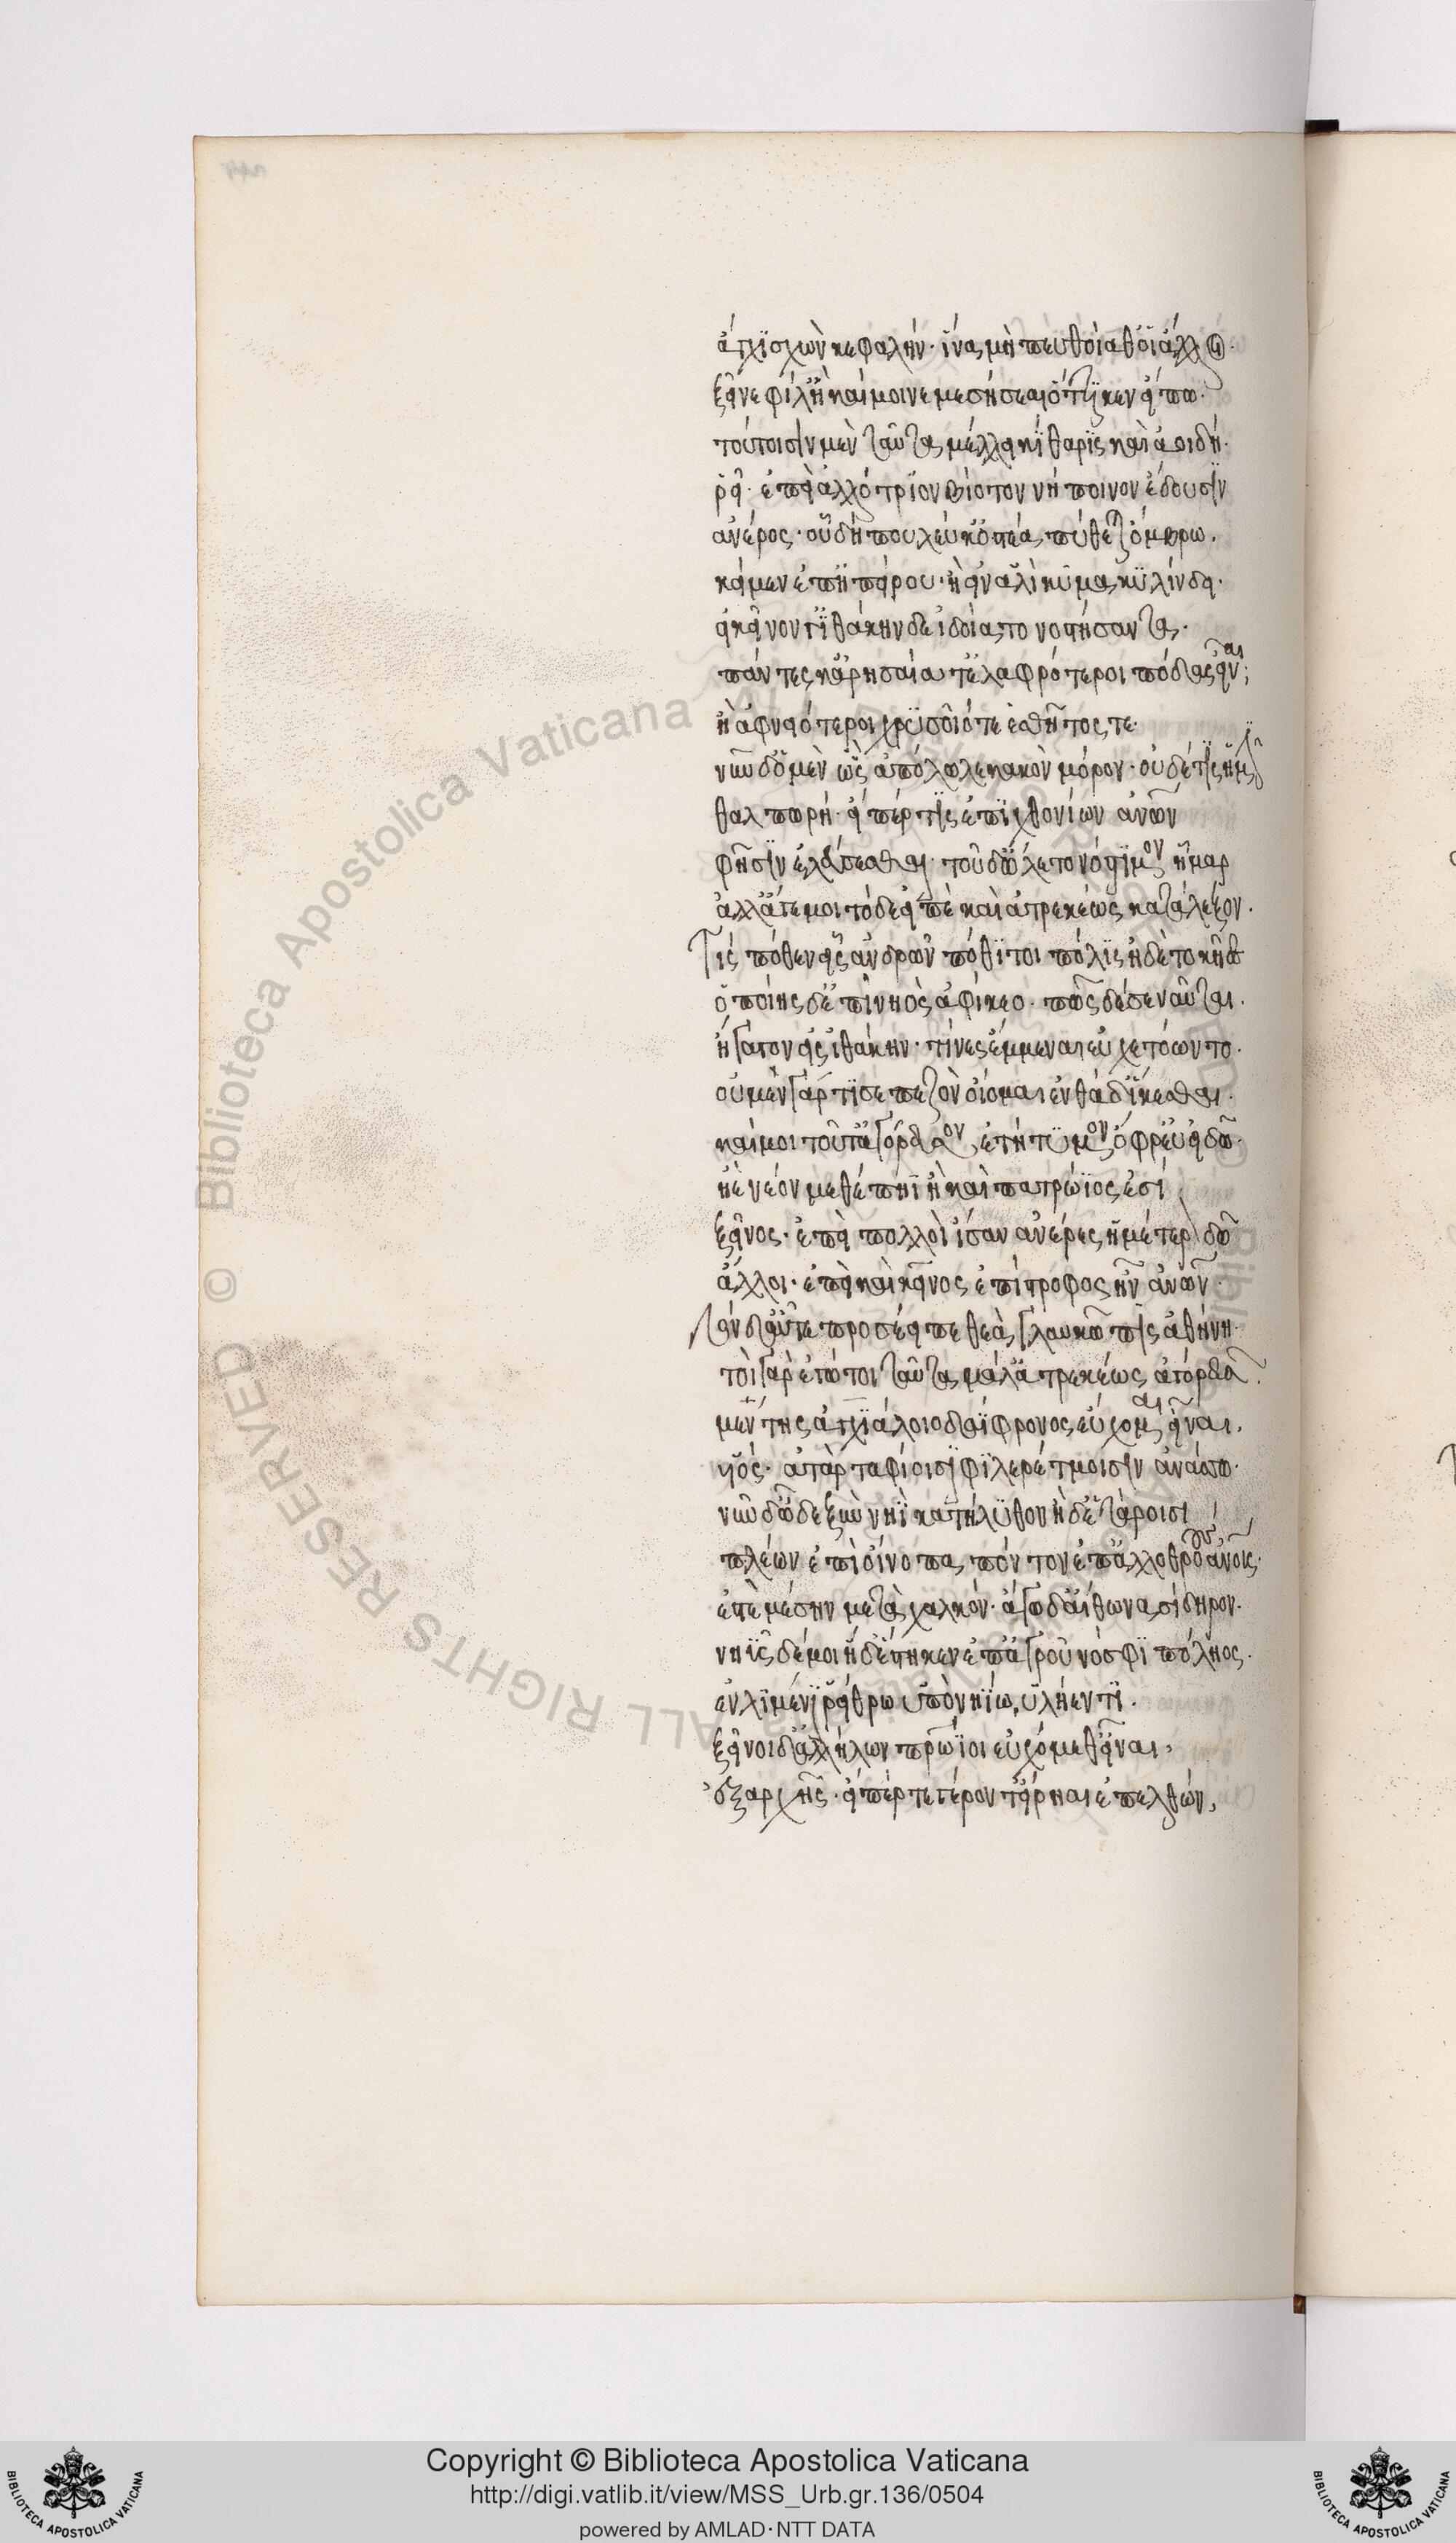 ἄγχι σχὼν κεφαλήν· ἵνα μὴ πευθοίαθ οἱ ἄλλοι·
ξεῖνε φίλ ἢ καί μοι νεμεσήσεαι ὅττι κεν εἴπω·
τούτοισιν μὲν ταῦτα μέλλει κίθαρις καὶ ἀοιδή·
ῥεῖ· ἐπεὶ ἀλλότριον βίοτον νήποινον ἔδουσιν
ἀνέρος· οὗ δή που λεύκ ὀστέα πύθεται ὄμβρω.
κείμεν ἐπ ἠπείρου· ἢ εἰν ἁλὶ κῦμα κυλίνδει·
εἰ κεῖνόν γ ἰθάκην δε ἰδοίατο νοστήσαντα·
πάντες κ ἀρησαίατ ἐλαφρότεροι πόδας εἶναι;
ἢ ἀφνειότεροι χρυσοῖό τε ἐσθῆτός τε·
νῦν δ ὃ μὲν ὣς ἀπόλωλε κακὸν μόρον· οὐδέ τις ἡμῖν
θαλπωρή· εἴ πέρ τις ἐπιχθονίων ἀνων
φησὶν ἐλεύσεσθαι· τοῦ δ ὤλετο νόστιμον ἦμαρ
ἀλλ ἄγε μοι τόδε εἰπὲ καὶ ἀτρεκέως κατάλεξον.
Τίς πόθεν εἶς ἀνδρῶν πόθι τοι πόλις ἠδὲ τοκῆες
ὁπποίης δ ἐπὶ νηὸς ἀφίκεο· πῶς δέ σε ναῦται.
ἤγαγον εἰς ἰθάκην· τίνες ἔμμεναι εὐχετόωντο·
οὐ μὲν γάρ τί σε πεζὸν οἴομαι ἐνθάδ ἱκέσθαι.
καί μοι τοῦτ ἀγόρευσον ἐτήτυμον ὄφρ εὖ εἰδῶ·
ἠὲ νέον μεθέπηι ἢ καὶ πατρώϊός ἐσσι
ξεῖνος· ἐπεὶ πολλοὶ ἴσαν ἀνέρες ἡμέτερον δῶ
ἄλλοι· ἐπεὶ καὶ κεῖνος ἐπίστροφος ἦν ἀνων·
Τὸν δ αὖτε προσέειπε θεὰ γλαυκῶπις ἀθήνη·
τοὶ γὰρ ἐγώ τοι ταῦτα μάλ ἀτρεκέως ἀγορεύσω.
μέντης ἀγχιάλοιο δαΐφρονος εὔχομαι εἶναι.
υἱός· ἀτὰρ ταφίοισι φιληρέτμοισιν ἀνάσσω·
νῦν δ ὧδε ξὺν νηῒ κατήλυθον ἠδ ἑτάροισι
πλέων ἐπὶ οἴνοπα πόντον ἐπ ἀλλοθρόους ἀνοις·
ἐς τεμέσην μετὰ χαλκόν· ἄγω δ αἴθωνα σίδηρον·
νηῦς δέ μοι ἥδ ἕστηκεν ἐπ ἀγροῦ νόσφι πόληος·
ἐν λιμένι ῥείθρω ὑπὸ νηίω ὑλήεντι.
ξεῖνοι δ ἀλλήλων πρώϊοι εὐχόμεθ εἶναι.
ἐξ ἀρχῆς· εἴ πέρ τε γέροντ εἴρηαι ἐπελθών,